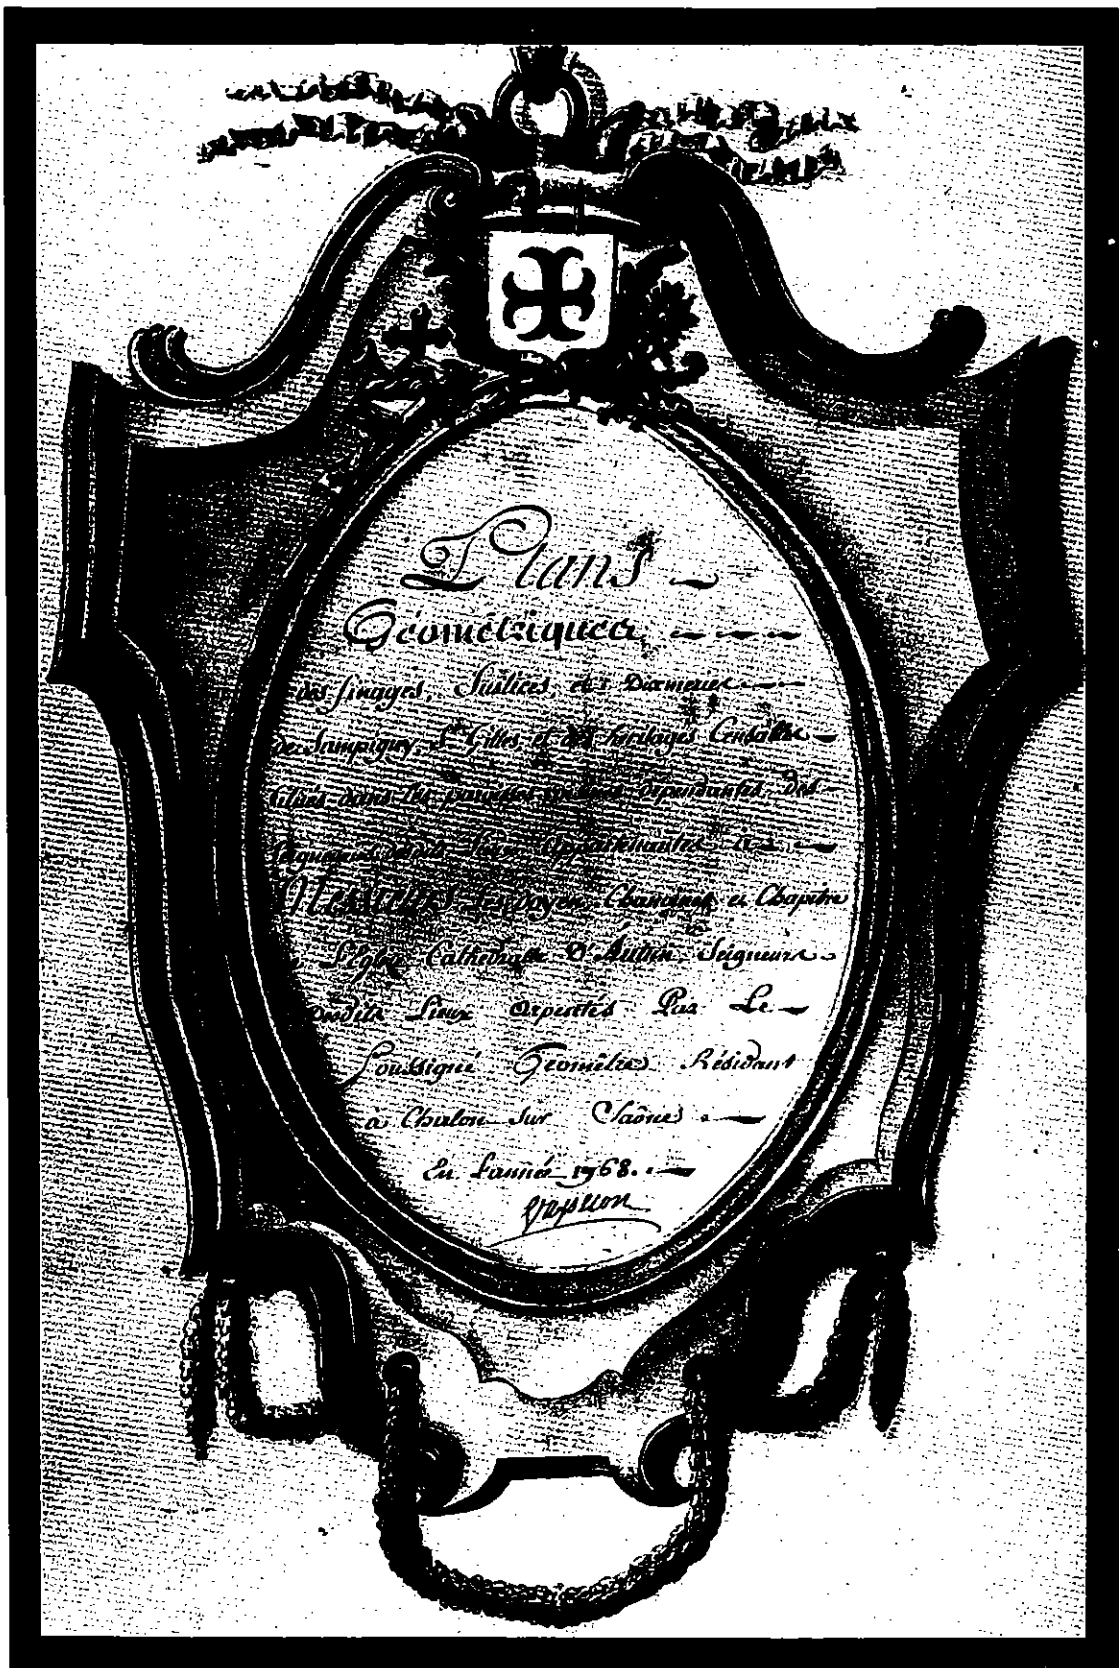 Plans
Géométriques
des finages, Justices, et Dixmeries
de Sampigny, St Gilles, et des héritages Censables
situés dans les dependantes, des
Appartenantes a
Messieurs Les Doyen, Chanoines, et Chapitre
L'Eglise Cathedralle D'Autun Seigneurs
Desdits Lieux Arpentés Par Le
Soussigné Géomêtre Résidant
a Chalon sur Saône
En L'année 1768.